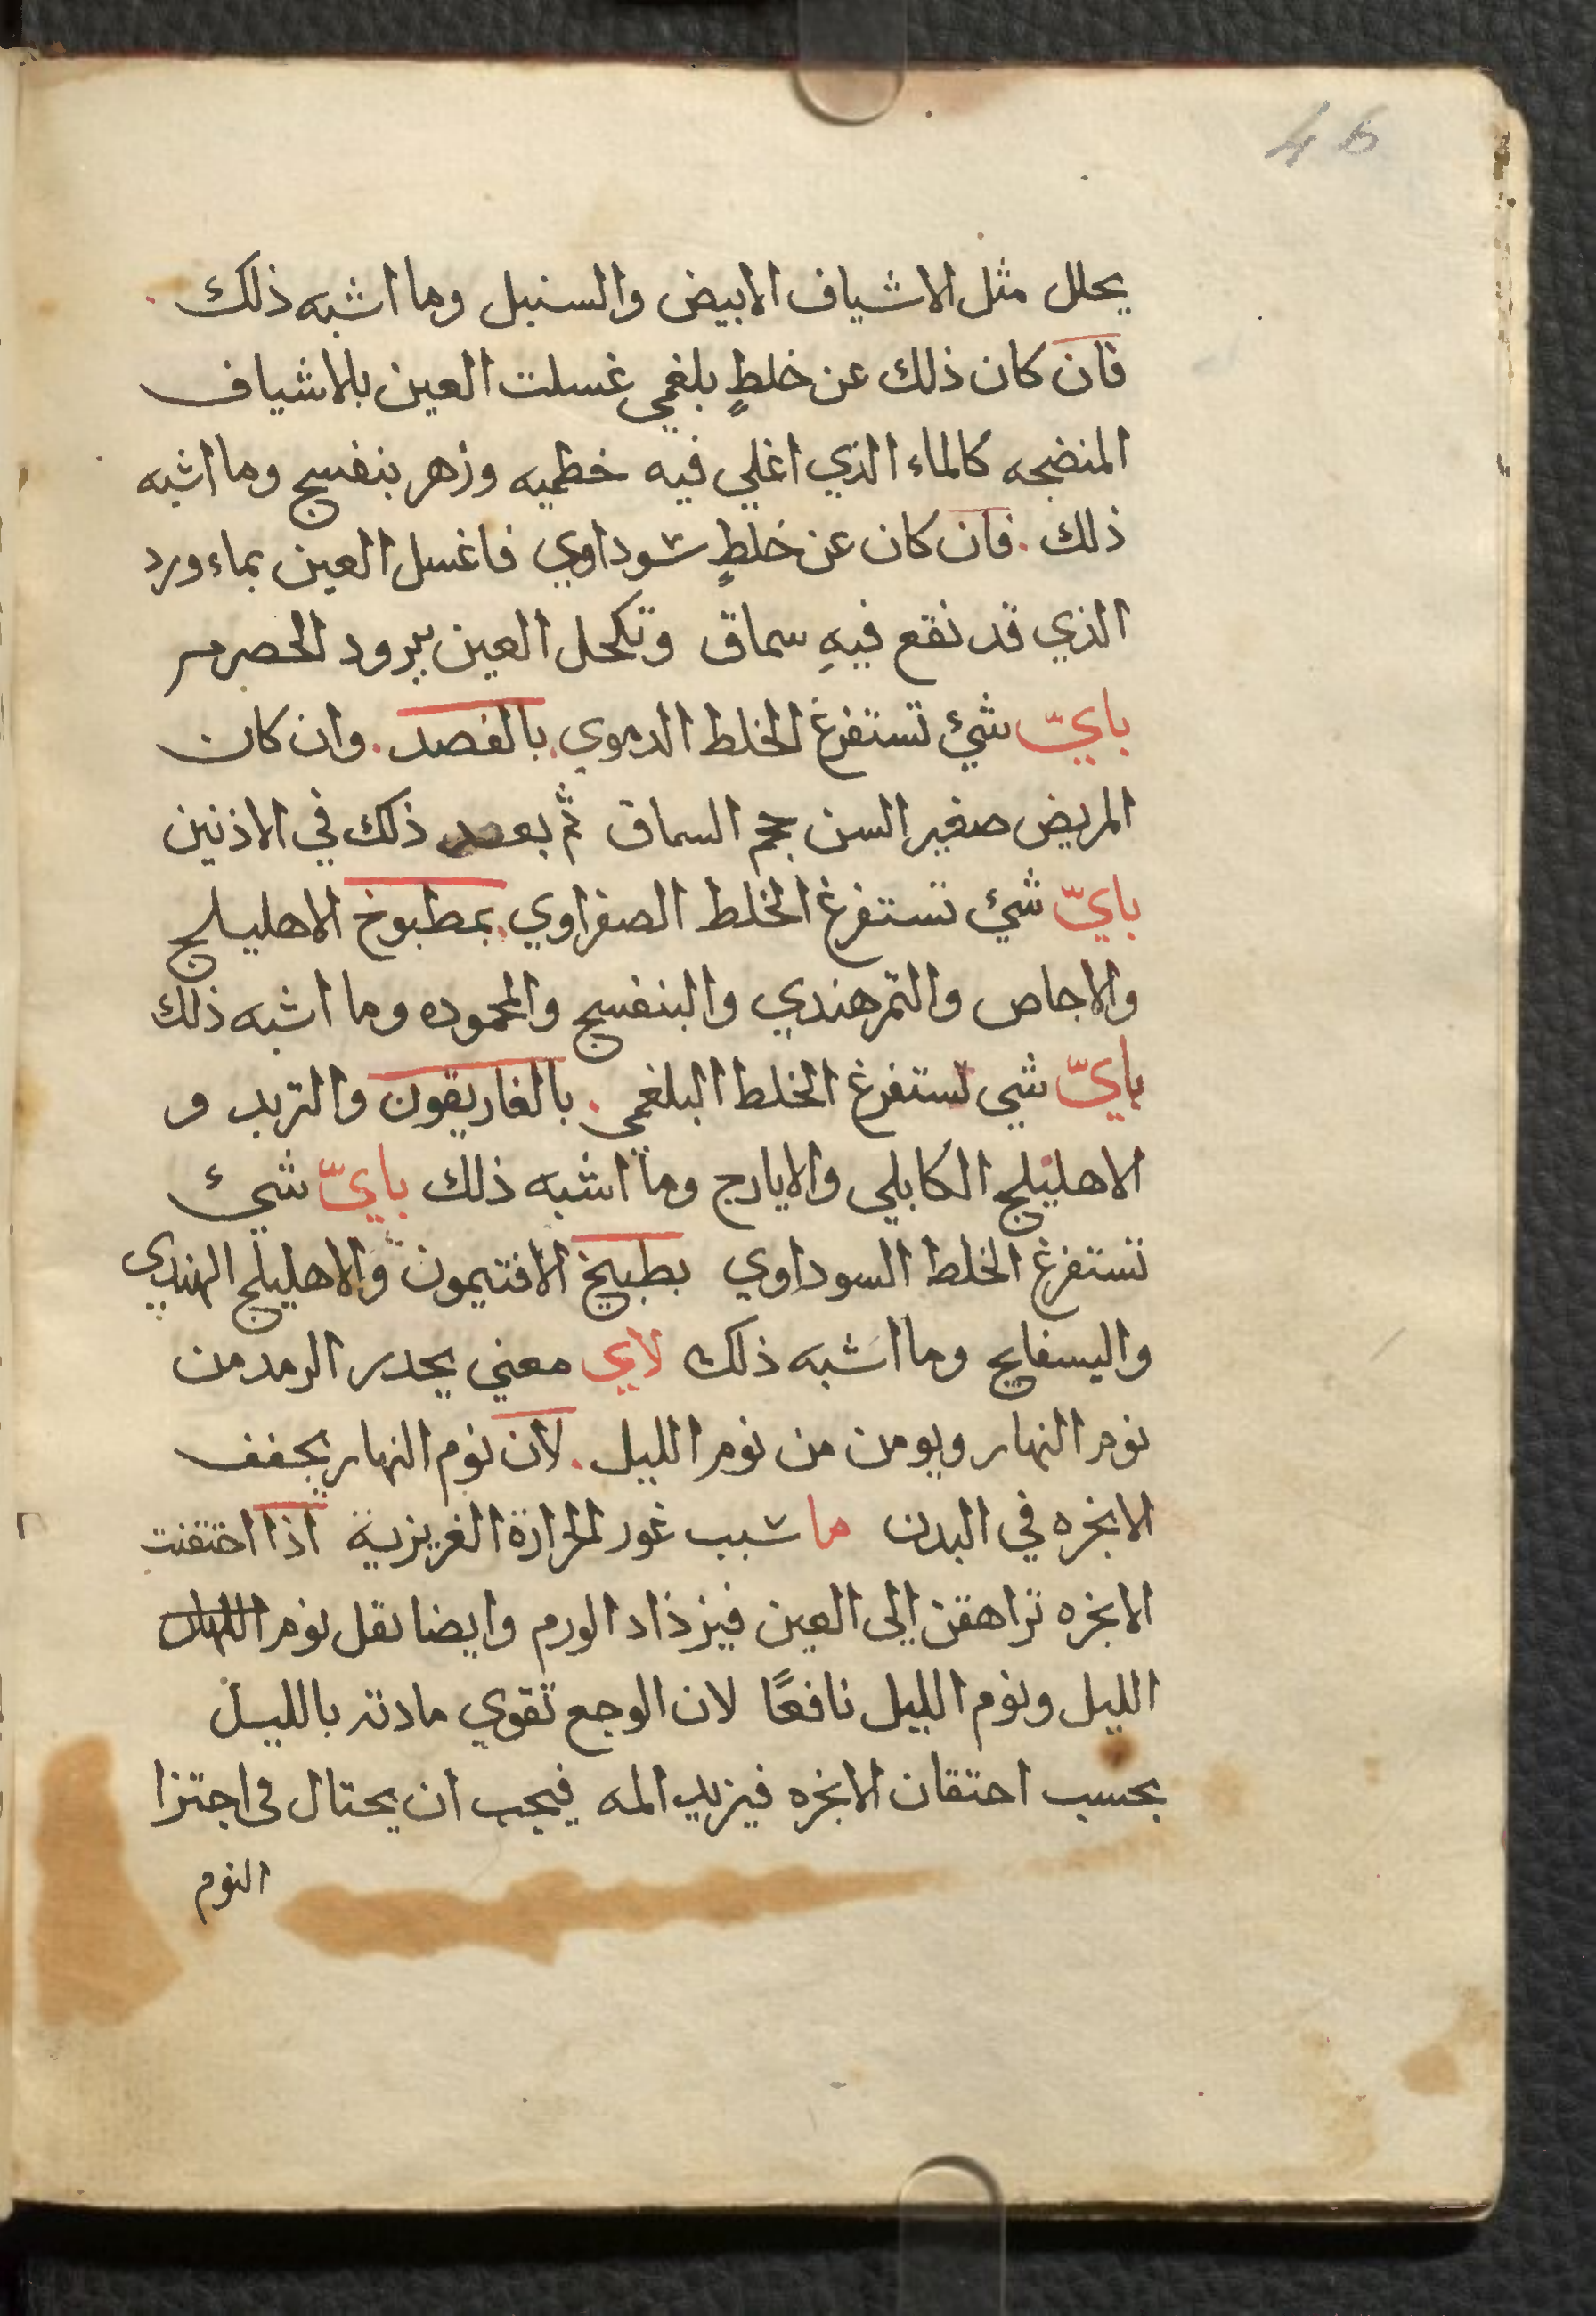 46
يحلل مثل الاشياف الابيض والسنبل وما اشبه ذلك .
فان كان ذلك عن خلطٍ بلغمي غسلت العين بالاشياف
المنضجه كالماء الذي اغلي فيه خطميه وزهر بنفسج وما اشبه
ذلك . فان كان عن خلطٍ سوداوي فاغسل العين بماء ورد
الذي قد نقع فيهِ سماق وتكحل العين ببرود الحصرم
بايّ شيء تستفرغ الخلط الدموي . بالفصد . وان كان
المريض صغير السن حجم السماق ثم بعد ذلك في الاذنين
بايّ شيء تستفرغ الخلط الصفراوي . بمطبوخ الاهليلج
والاجاص والتمرهندي والبنفسج والمحموده وما اشبه ذلك
بايّ شي تستفرغ الخلط البلغمي . بالغاريقون والتربد و
الاهليلج الكابلي والايارج وما اشبه ذلك بايّ شيء
تستفرغ الخلط السوداوي بطبيخ الافتيمون والاهليلج الهندي
والبسفايج وما اشبه ذلك لاي معني يحدر الرمد من
نوم النهار ويومن من نوم الليل . لان نوم النهار يجفف
الابخره في البدن ما سبب غور الحرارة الغريزية اذا اختقنت
الابخره تراهقن إلى العين فيزذاد الورم وايضا نقل نوم
الليل ونوم الليل نافعًا لان الوجع تقوي مادته بالليل
بحسب احتقان الابخره فيزيد المه فيجب ان يحتال في اجتزا
النوم